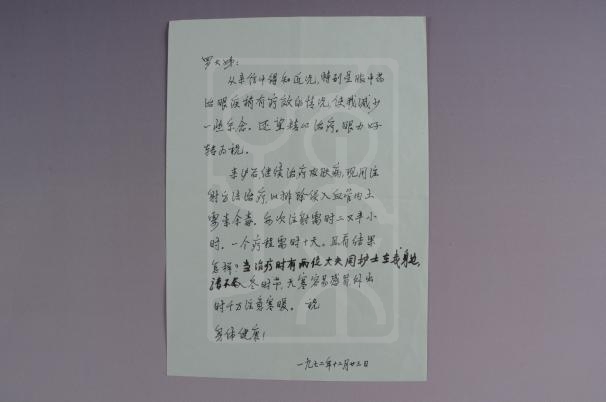 罗大姊：
从来信中得知近况，特别是服中药
治眼疾稍有疗效的情况，使我减少
一些示念。还望精心治疗。眼力好
转为祝。
来沪后继续治疗皮肤病，现用注
射方法治疗，以排除侵入血管内土
霉素余毒。每次注射需时二又半小
时，一个疗程需时十天。且看结果
怎样？当治疗时有两位大夫同护士在我身边，
请不念。冬时节，天寒容易感冒，外出
时千万注意寒暖。 祝
身体健康！
一九七二年十二月廿三日